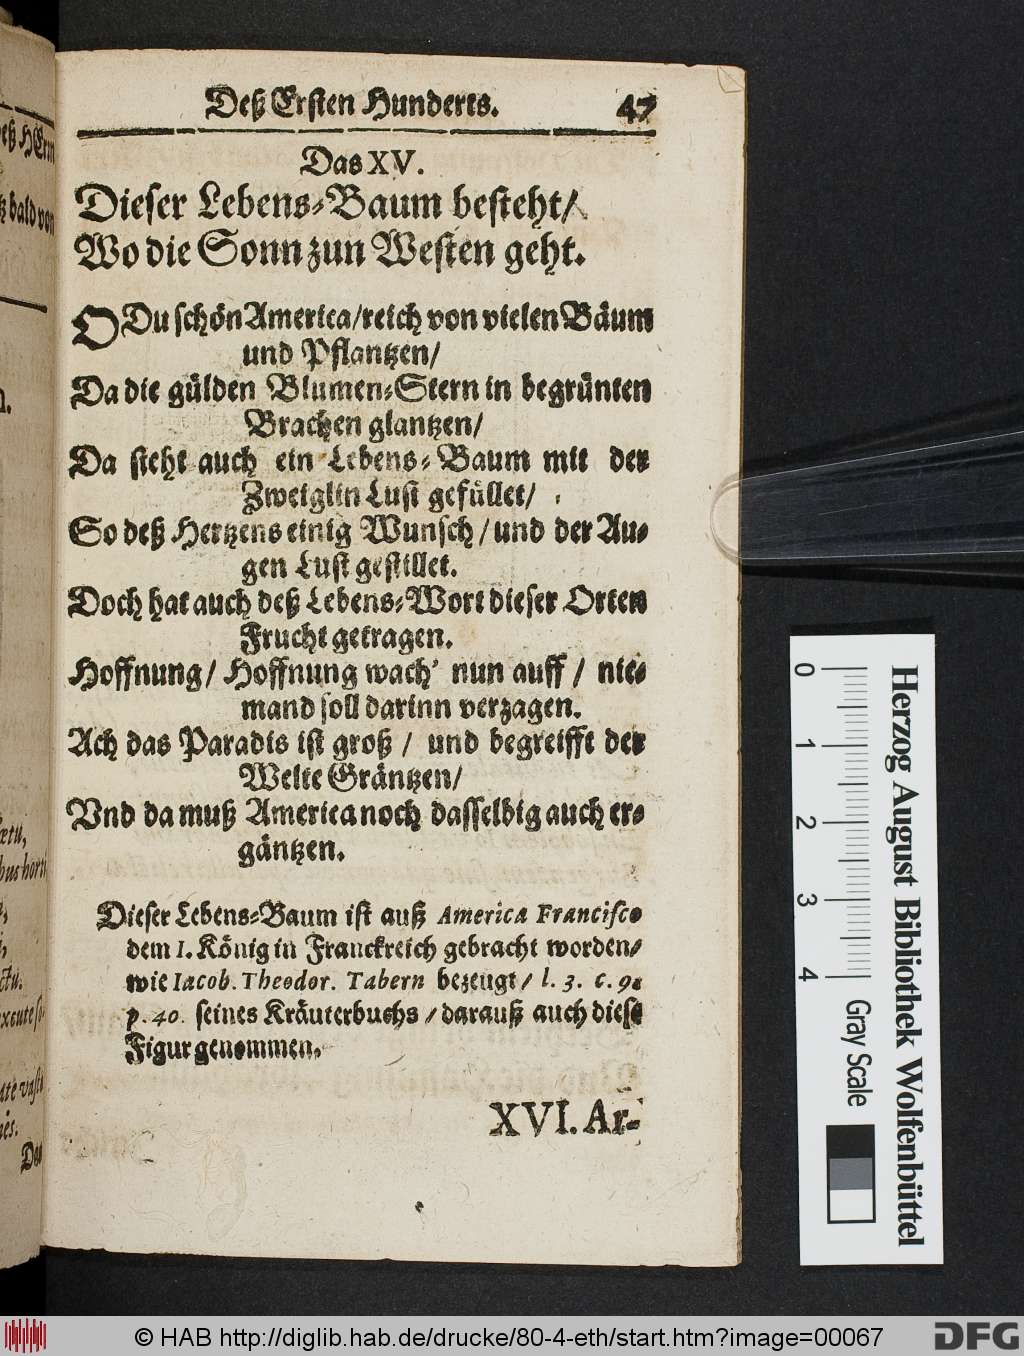 Deß Ersten Hunderts. 47
Das XV.
Dieser Lebens-Baum besteht/
Wo die Sonn zun Westen geht.
O Du schön America/ reich von vielen Bäum
und Pflantzen/
Da die gülden Blumen-Stern in begrünten
Brachen glantzen/
Da steht auch ein Lebens-Baum mit der
Zweiglin Lust gefüllet/
So deß Hertzens einig Wunsch / und der Au-
gen Lust gestillet.
Doch hat auch deß Lebens-Wort dieser Orten
Frucht getragen.
Hoffnung/ Hoffnung wach' nun auff / nie-
mand soll darinn verzagen.
Ach das Paradis ist groß / und begreifft der
Welte Gräntzen/
Vnd da muß America noch dasselbig auch er-
gäntzen.
Dieser Lebens-Baum ist auß America Francisco
dem I. König in Franckreich gebracht worden/
wie Iacob. Theodor. Tabern bezeugt / l. 3. c. 91
p. 40. seines Kräuterbuchs / darauß auch diese
Figur genommen.
XVI. Ar-
deß HErrn
bald von
n.
œtu,
bus horti
ctu.
ate vasti
nes.
Das
0 1 2 3 4
Herzog August Bibliothek Wolfenbüttel
Gray Scale
© HAB http://diglib.hab.de/drucke/80-4-eth/start.htm?image=00067
DFG